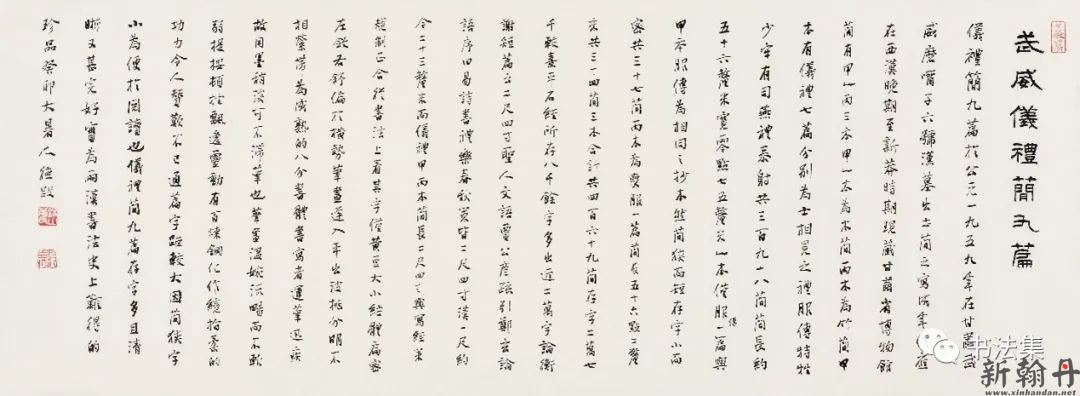 武威儀禮簡九篇
儀禮簡九篇於公元一九五九年在甘肅武
威磨嘴子六號漢墓出土簡之寫成年應
在西漢晚期至新莽時期現藏甘肅省博物館
簡有甲乙丙三本甲乙本為木簡丙本為竹簡甲
本有儀禮七篇分別為士相見之禮服傳特牲
少牢有司燕禮泰射共三百九八簡簡長約
五十六釐米寬零點七五釐米乙本僅服傳一篇與
甲本服傳為相同之抄本然簡狹而短存字小而
密共三十七簡丙本為喪服一篇簡長五十六點二釐
米共三一四簡三本合計共四百六十九簡存字二萬七
千較熹平石經所存八千餘字多出近二萬字論衡
謝短篇云二尺四寸聖人文語賈公彥疏引鄭玄論
語序曰易詩書禮樂春秋策皆二尺四寸漢一尺約
今二十三釐米而儀禮甲丙本簡長二尺四寸與寫經策
規制正合從書法上看其字僅黃豆大小結體扁密
左斂右舒偏於橫勢筆畫逆入平出波挑分明不
相縈帶為成熟的八分書體書寫者運筆迅疾
故用墨稍淡可不滯筆也筆畫溫婉淡略而不軟
弱提按頓挫飄逸靈動有百煉鋼化作繞指柔的
功力令人贊歎不已通篇字距較大因簡狹字
小為便於閱讀也儀禮簡九篇存字多且清
晰又甚完好實為兩漢書法史上難得的
珍品癸卯大暑人德跋
书法集
新翰丹
www.xinhandan.net